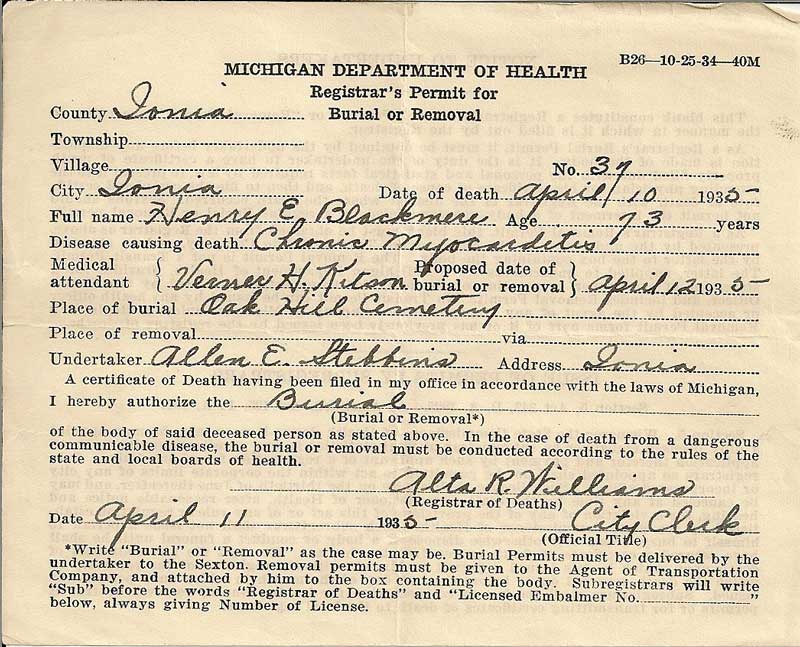 B26—10-25-34—40M
MICHIGAN DEPARTMENT OF HEALTH
Registrar's Permit for
Burial or Removal
County Ionia
Township
Village
No. 37
City Ionia Date of death April 10 1935
Full name Henry E. Blackmere Age 73 years
Disease causing death Chronic Myocarditis
Medical attendant { Verner H. Kitson Proposed date of burial or removal } April 12 1935
Place of burial Oak Hill Cemetery
Place of removal via
Undertaker Allen E. Stebbins Address Ionia
A certificate of Death having been filed in my office in accordance with the laws of Michigan,
I hereby authorize the Burial
(Burial or Removal*)
of the body of said deceased person as stated above. In the case of death from a dangerous
communicable disease, the burial or removal must be conducted according to the rules of the
state and local boards of health.
Alta R. Williams
(Registrar of Deaths)
Date April 11 1935 City Clerk
(Official Title)
*Write "Burial" or "Removal" as the case may be. Burial Permits must be delivered by the
undertaker to the Sexton. Removal permits must be given to the Agent of Transportation
Company, and attached by him to the box containing the body. Subregistrars will write
"Sub" before the words "Registrar of Deaths" and "Licensed Embalmer No. "
below, always giving Number of License.